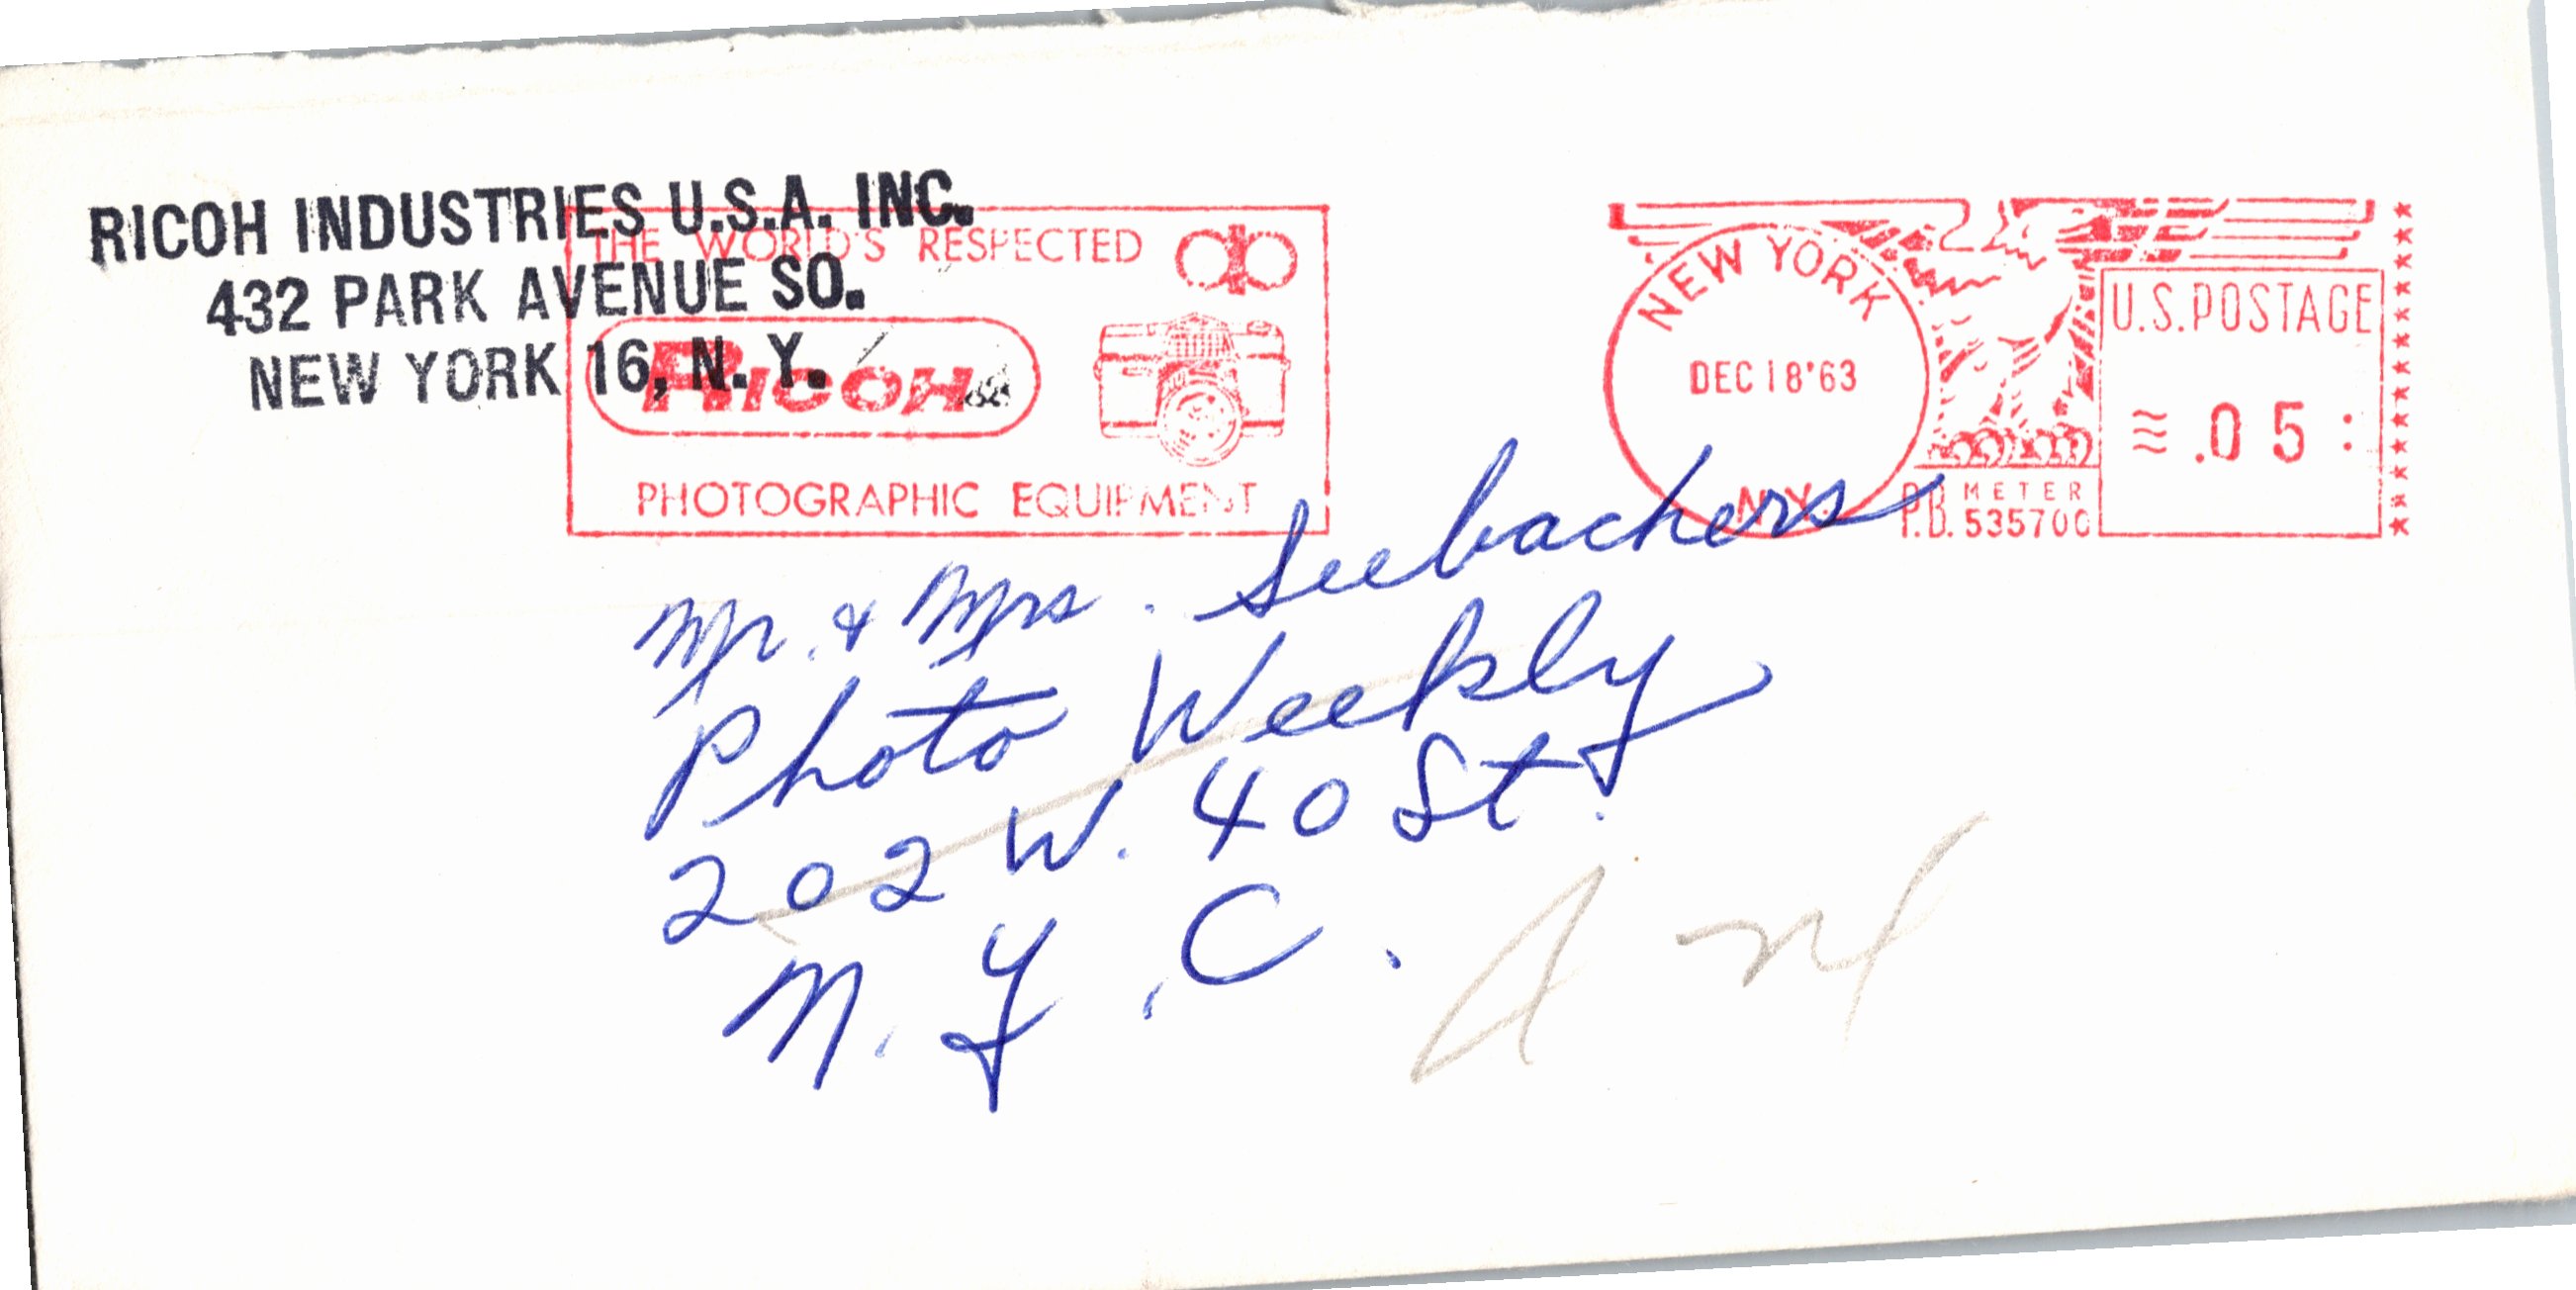 RICOH INDUSTRIES U.S.A. INC.
432 PARK AVENUE SO.
NEW YORK 16, N. Y.
THE WORLD'S RESPECTED
RICOH
PHOTOGRAPHIC EQUIPMENT
NEW YORK
DEC 18 '63
N.Y.
U.S. POSTAGE
.05
P.B. METER
535700
Mr. & Mrs. Seebachers
Photo Weekly
202 W. 40 St.
N. Y. C.